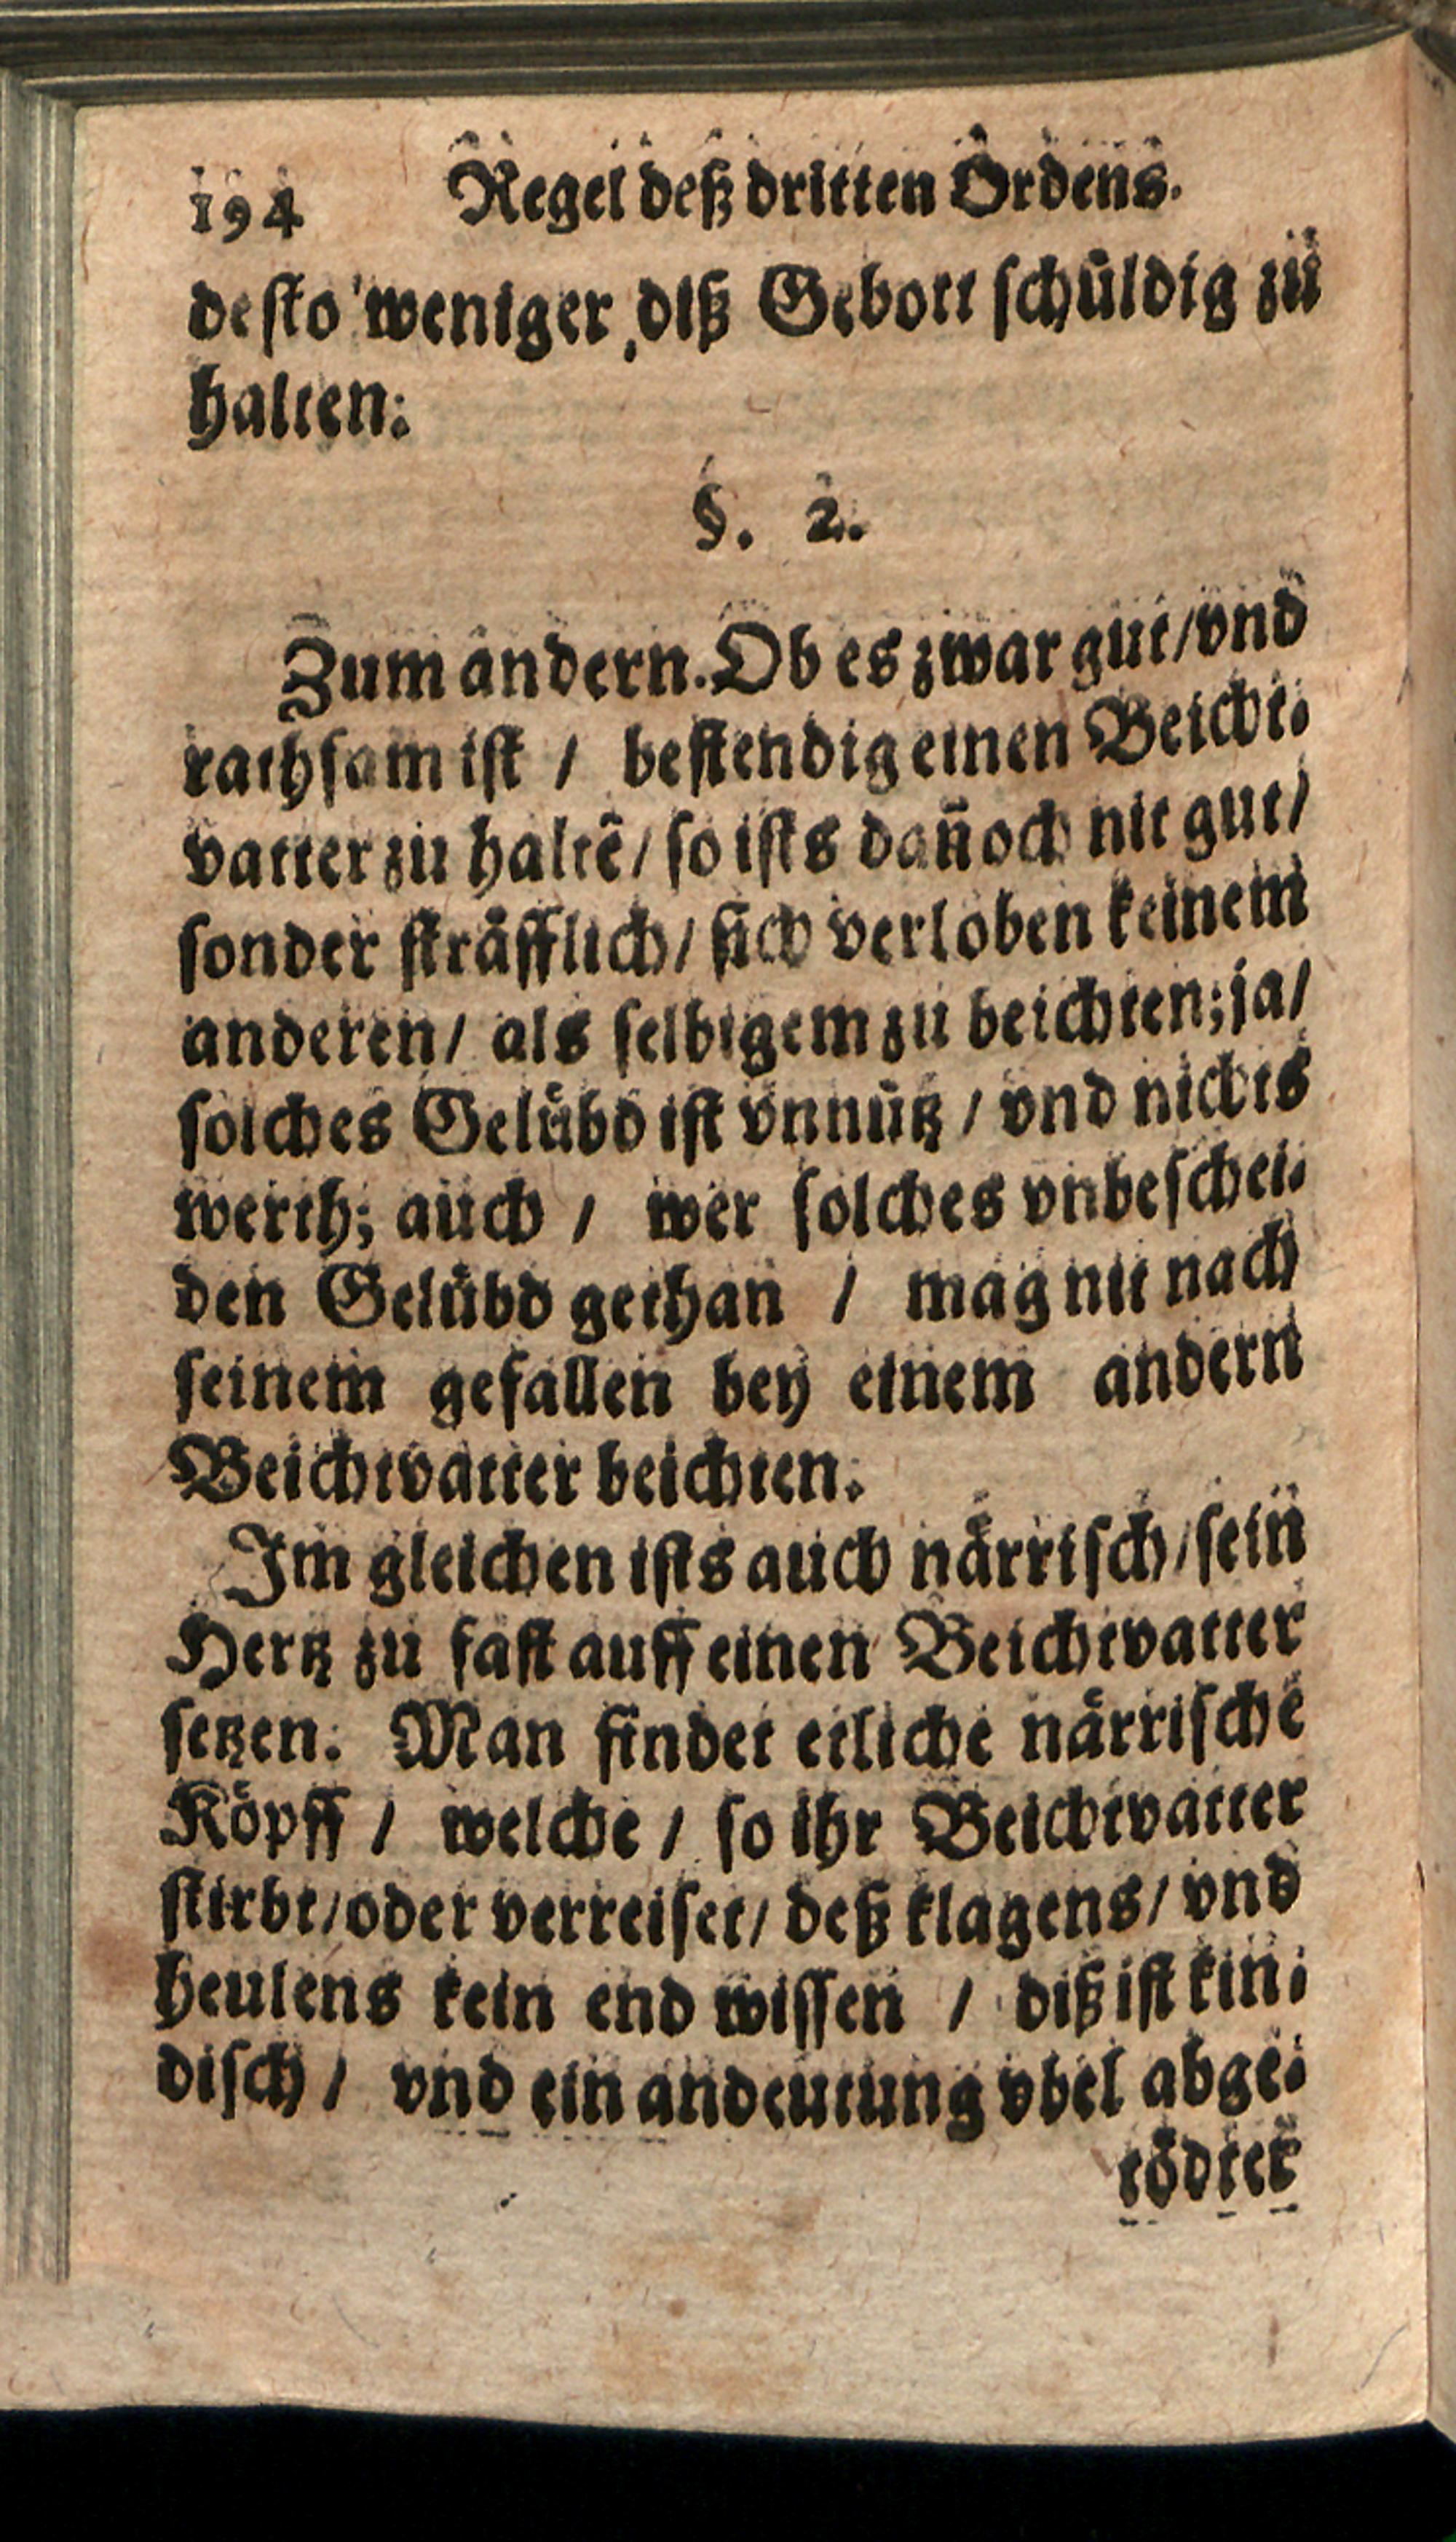 194 Regel deß dritten Ordens.
desto weniger diß Gebott schuldig zu
halten:
§. 2.
Zum andern. Ob es zwar gut/vnd
rathsam ist / bestendig einen Beicht-
vatter zu haltē/ so ists dañoch nit gut/
sonder sträfflich/ sich verloben keinem
anderen/ als selbigem zu beichten; ja/
solches Gelübd ist vnnütz / vnd nichts
werth; auch / wer solches vnbeschei-
den Gelübd gethan / mag nit nach
seinem gefallen bey einem andern
Beichtvatter beichten.
Im gleichen ists auch närrisch/sein
Hertz zu fast auff einen Beichtvatter
setzen. Man findet etliche närrische
Köpff / welche / so ihr Beichtvatter
stirbt/oder verreiset/ deß klagens/ vnd
heulens kein end wissen / diß ist kin-
disch / vnd ein andeutung vbel abge-
tödter